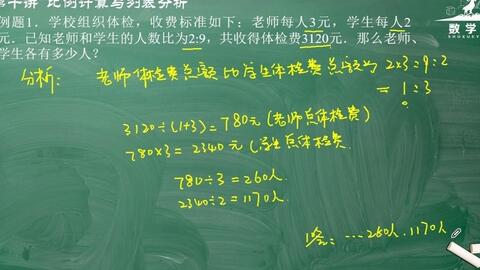 第十讲 比例计算与列表分析
数学
SHUXUEY
例题1. 学校组织体检，收费标准如下：老师每人3元，学生每人2
元. 已知老师和学生的人数比为2:9，共收得体检费3120元. 那么老师、
学生各有多少人？
分析：老师体检费总额比学生体检费总额为 2×3=9:2
= 1:3
3120÷(1+3)=780元(老师总体检费)
780×3=2340元(学生总体检费.
780÷3=260人
2340÷2=1170人.
答：…260人.1170人